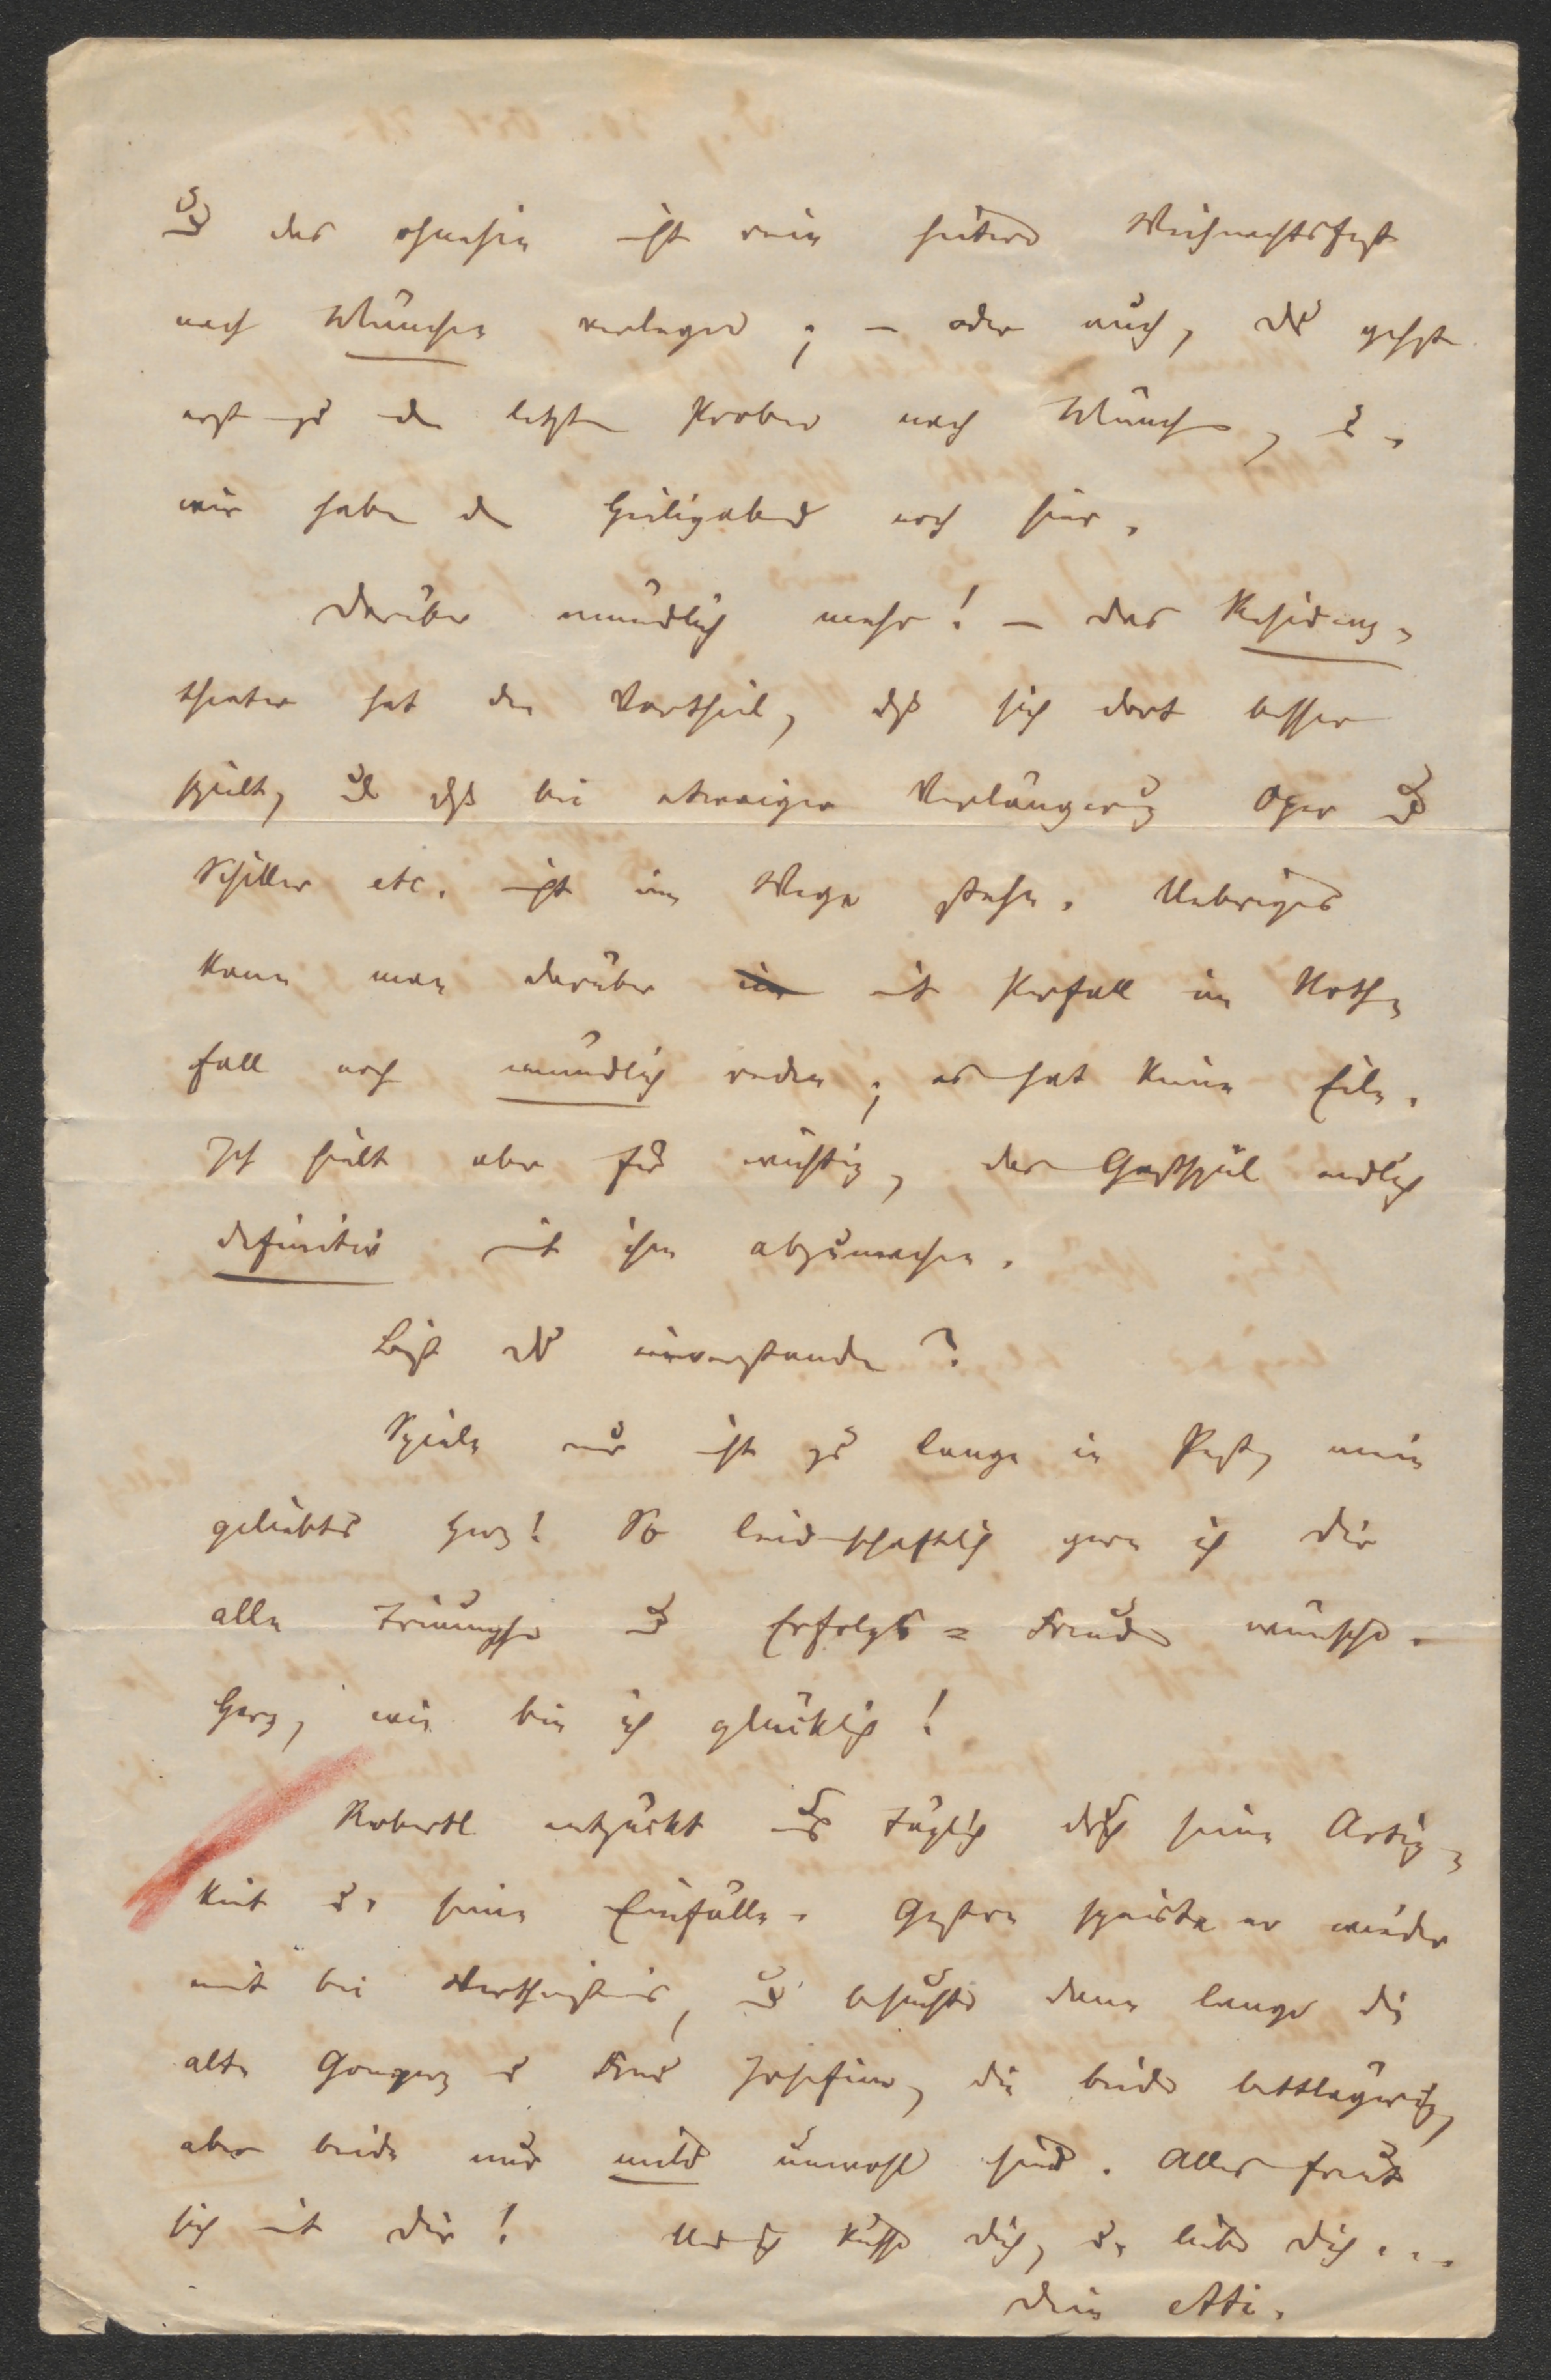 und das ohnehin nicht sein heitres Weihnachtsfest
nach München verlegen; – oder auch, du gehst
erst zu den letzten Proben nach München, u.
wir haben den Heiligabend noch hier.
Darüber mündlich mehr! – Das Residenz-
theater hat den Vortheil, daß sich dort besser
spielt, und daß bei etwaiger Verlängerung Oper und
Schiller etc. nicht im Wege stehn. Uebrigens
kann man darüber mit Perfall im Noth-
fall noch mündlich reden; es hat keine Eile.
Ich hielt aber für wichtig, das Gastspiel endlich
definitiv mit ihm abzumachen.
Bist du einverstanden?
Spiele nur nicht zu lange in Pest, mein
geliebtes Herz! So leidenschaftlich gern ich dir
alle Triumphe und Erfolgs-Freuden wünsche.
Herz, wie bin ich glücklich!
Robertl entzückt uns täglich durch seine Artig-
keit u. seine Einfälle. Gestern speiste er wieder
mit bei Wertheimsteins, und besuchte dann lange die
alte Gomperz u Frau Josefine, die beide bettlägerig,
aber beide nur mild unwohl sind. Alles freut
sich mit dir! Und ich küsse dich, u. liebe dich...
Dein Adi.